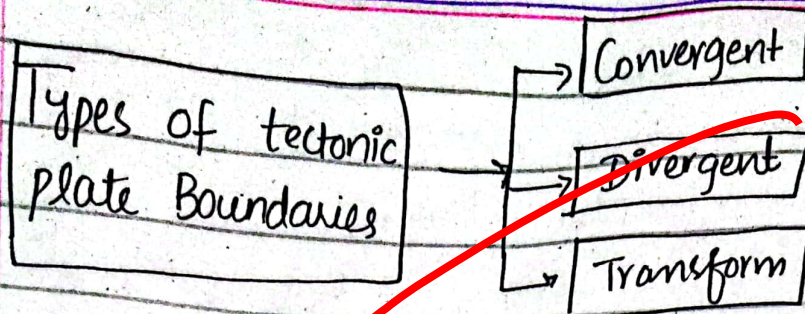 Types of tectonic
plate Boundaries
Convergent
Divergent
Transform